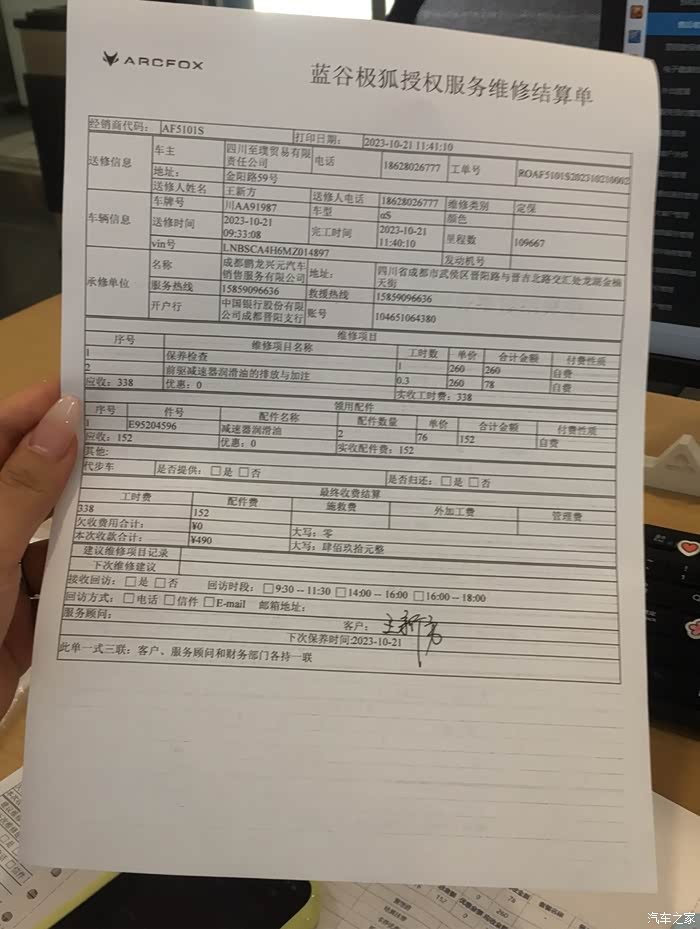 ARCFOX
蓝谷极狐授权服务维修结算单
经销商代码： AF5101S 打印日期： 2023-10-21 11:41:10
送修信息 车主 四川至璞贸易有限责任公司 电话 18628026777 工单号 ROAF5101S202310210002
地址： 金阳路59号
送修人姓名 王新方 送修人电话 18628026777 维修类别 定保
车辆信息 车牌号 川AA91987 车型 αS 颜色
送修时间 2023-10-21 09:33:08 完工时间 2023-10-21 11:40:10 里程数 109667
vin号 LNBSCA4H6MZ014897 发动机号
承修单位 名称 成都鹏龙兴元汽车销售服务有限公司 地址： 四川省成都市武侯区晋阳路与晋吉北路交汇处龙湖金楠天街
服务热线 15859096636 救援热线 15859096636
开户行 中国银行股份有限公司成都晋阳支行 账号 104651064380
维修项目
序号 维修项目名称 工时数 单价 合计金额 付费性质
1 保养检查 1 260 260 自费
2 前驱减速器润滑油的排放与加注 0.3 260 78 自费
应收：338 优惠：0 实收工时费：338
领用配件
序号 件号 配件名称 配件数量 单价 合计金额 付费性质
1 E95204596 减速器润滑油 2 76 152 自费
应收：152 优惠：0 实收配件费：152
其他:
代步车 是否提供：□是 □否 是否归还：□是 □否
最终收费结算
工时费 配件费 施救费 外加工费 管理费
338 152
欠收费用合计： ¥0 大写：零
本次收款合计： ¥490 大写：肆佰玖拾元整
建议维修项目记录
下次维修建议
接收回访：□是 □否 回访时段：□9:30 -- 11:30 □14:00 -- 16:00 □16:00 -- 18:00
回访方式：□电话 □信件 □E-mail 邮箱地址：
服务顾问： 客户： 王新方
下次保养时间:2023-10-21
此单一式三联：客户、服务顾问和财务部门各持一联
汽车之家